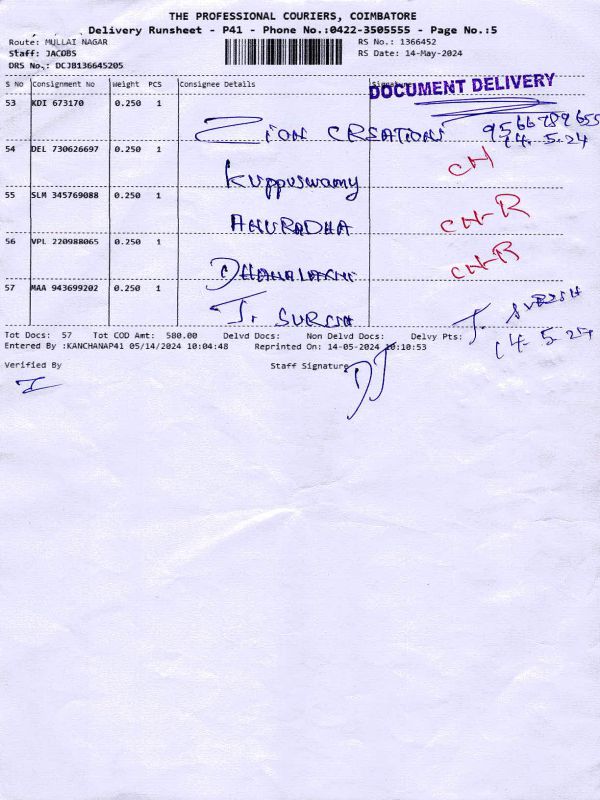 THE PROFESSIONAL COURIERS, COIMBATORE
Delivery Runsheet - P41 - Phone No.:0422-3505555 - Page No.:5
Route: MULLAI NAGAR RS No.: 1366452
Staff: JACOBS RS Date: 14-May-2024
DRS No.: DCJB136645205
S No Consignment No Weight PCS Consignee Details
DOCUMENT DELIVERY
53 KDI 673170 0.250 1
ZION CREATIONS 9566789655
14.5.24
54 DEL 730626697 0.250 1
Kuppuswamy CN
55 SLM 345769088 0.250 1
ANURADHA CN-R
56 VPL 220988065 0.250 1
DHANALAXMI CN-R
57 MAA 943699202 0.250 1
J. SURESH J. SURESH
14.5.24
Tot Docs: 57 Tot COD Amt: 580.00 Delvd Docs: Non Delvd Docs: Delvy Pts:
Entered By :KANCHANAP41 05/14/2024 10:04:48 Reprinted On: 14-05-2024 10:10:53
Verified By Staff Signature